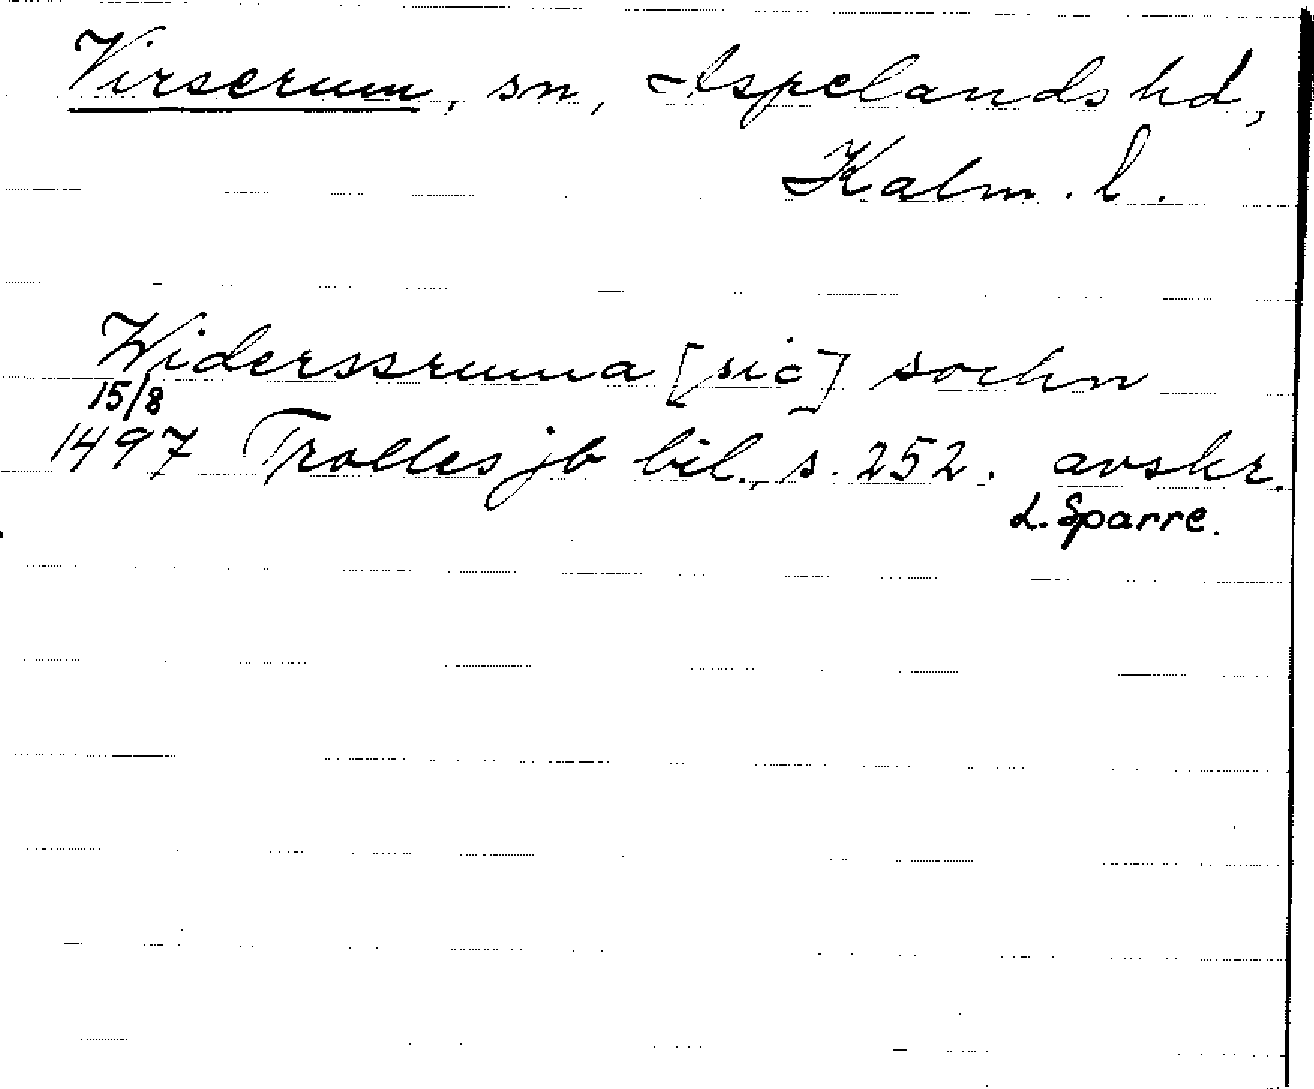 Virserum, sn, Aspelands hd,
Kalm. l.
Widerssruma [sic] sochn
15/8
1497 Trolles jb bil., s. 252. avskr.
L. Sparre.